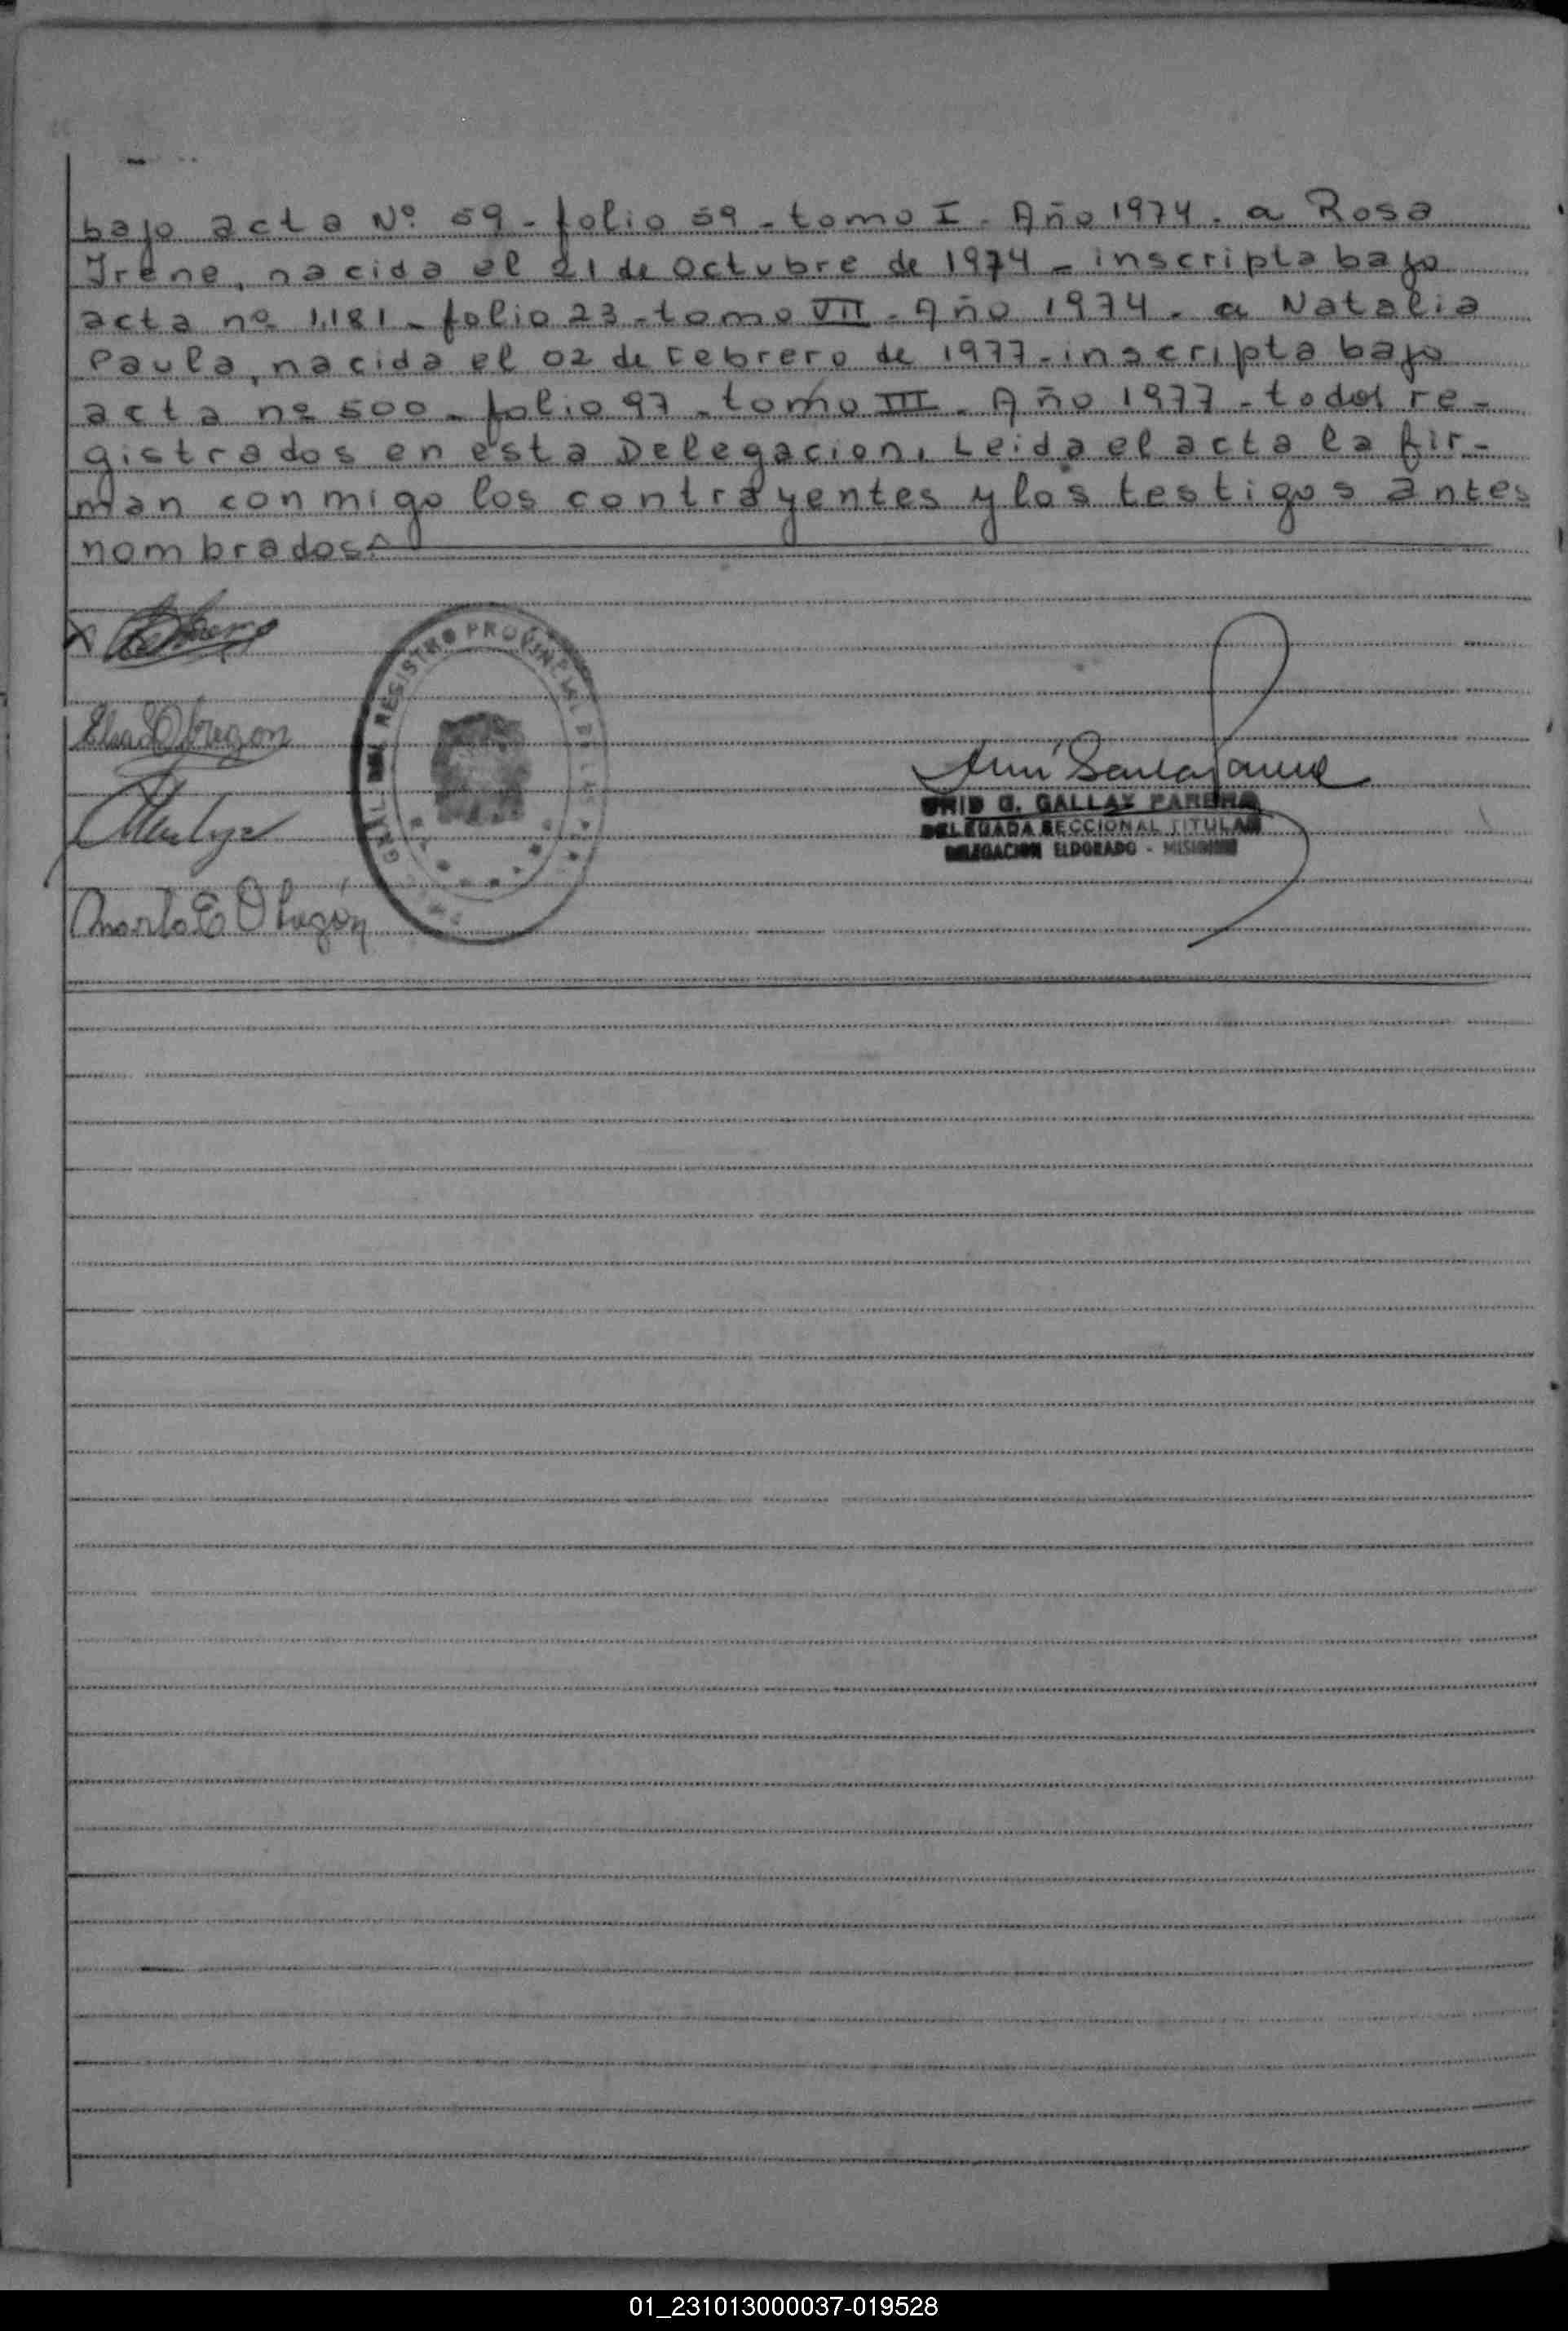 bajo acta Nº 59 - folio 59 - tomo I - Año 1974 - a Rosa
Irene, nacida el 21 de Octubre de 1974 - inscripta bajo
acta nº 1,181 - folio 23 - tomo VII - Año 1974 - a Natalia
Paula, nacida el 02 de Febrero de 1977 - inscripta bajo
acta nº 500 - folio 97 - tomo III - Año 1977 - todos re-
gistrados en esta Delegacion, Leida el acta la fir-
man conmigo los contrayentes y los testigos antes
nombrados
REGISTRO PROVINCIAL DE LAS
Elsa Obregon
G. GALLAY PAREHA
DELEGADA SECCIONAL TITULAR
DELEGACION ELDORADO - MISIONES
Marta E Obregón
01_231013000037-019528